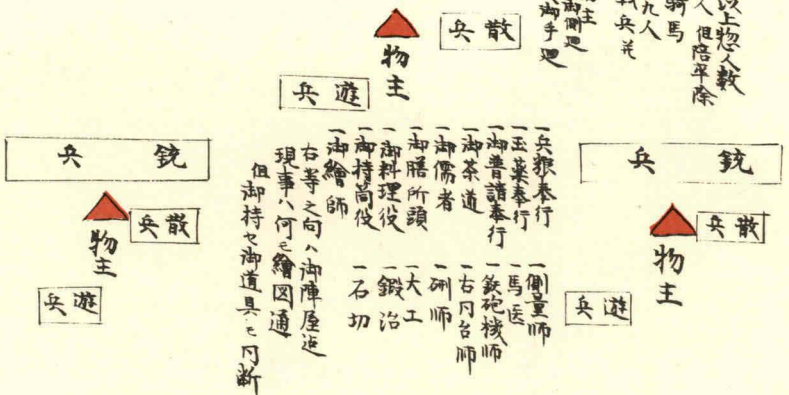 以上惣人数
人 但陪卒除
騎馬
九人
物主
御側廻
御手廻
散兵
物主
遊兵
銃兵
散兵
物主
遊兵
一兵粮奉行
一玉薬奉行
一御普請奉行
一御茶道
一御儒者
一御膳所頭
一御料理役
一御持筒役
一御繪師
一側量師
一馬医
一鉄砲機師
一右冋台師
一硎師
一大工
一鍛治
一石切
右等之向ハ御陣屋迄
現事ハ何モ繪図通
但御持セ御道具モ冋断
銃兵
散兵
物主
遊兵